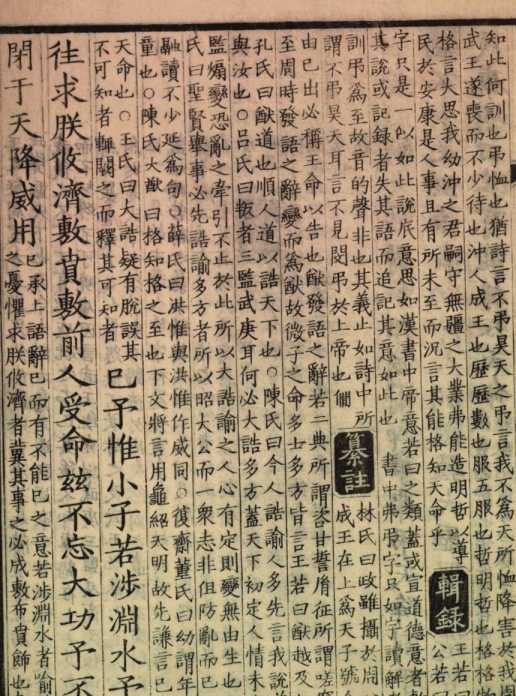 知此何訓也弔恤也猶詩言不弔昊天之弔言我不爲天所恤降害於我
武王遂喪而不少待也沖人成王也歷歷數也服五服也哲明哲也格
格言大思我幼沖之君嗣守無疆之大業弗能造明哲以導
民於安康是人事且有所未至而況言其能格知天命乎
輯錄
王若
公若
字只是一似如此說底意思如漢書中帝意若曰之類蓋或宣道德意者
其說或記錄者失其語而追記其意如此也 書中弗弔字只如字讀解
訓弔爲至故音的聲非也其義止如詩中所
謂不弔昊天耳言不見閔弔於上帝也僩
纂註
林氏曰政雖攝於周
成王在上爲天子號
由已出必稱王命以告也猷發語之辭若二典所謂咨甘誓胤征所謂嗟
至周時發語之辭變而爲猷故微子之命多士多方皆言王若曰猷越及
孔氏曰猷道也順人道以誥天下也○陳氏曰今人誥諭人多先言我說
與汝也○呂氏曰叛者三監武庚耳何必大誥多方蓋天下初定人情未
監煽變恐亂之韋引不止於此所以大誥諭之人心有定則變無由生也
氏曰聖賢舉事必先誥諭多方者所以昭大公而一衆志非但防亂而已
融讀不少延爲句○薛氏曰洪惟與洪惟作威同○復齋董氏曰幼謂年
童也○陳氏大猷曰格知格之至也下文將言用龜紹天明故先謙言已
天命也○王氏曰大誥疑有脫誤其
不可知者輒闕之而釋其可知者
已予惟小子若涉淵水予
往求朕攸濟敷賁敷前人受命茲不忘大功予不
閉于天降威用
已承上語辭已而有不能已之意若涉淵水者喻
之憂懼求朕攸濟者冀其事之必成敷布賁飾也